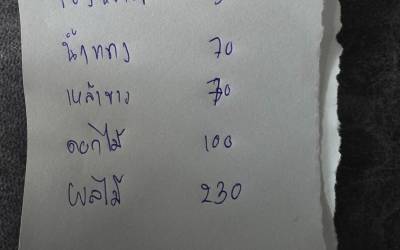 น้ำแดง 70
เหล้าขาว 70
ดอกไม้ 100
ผลไม้ 230